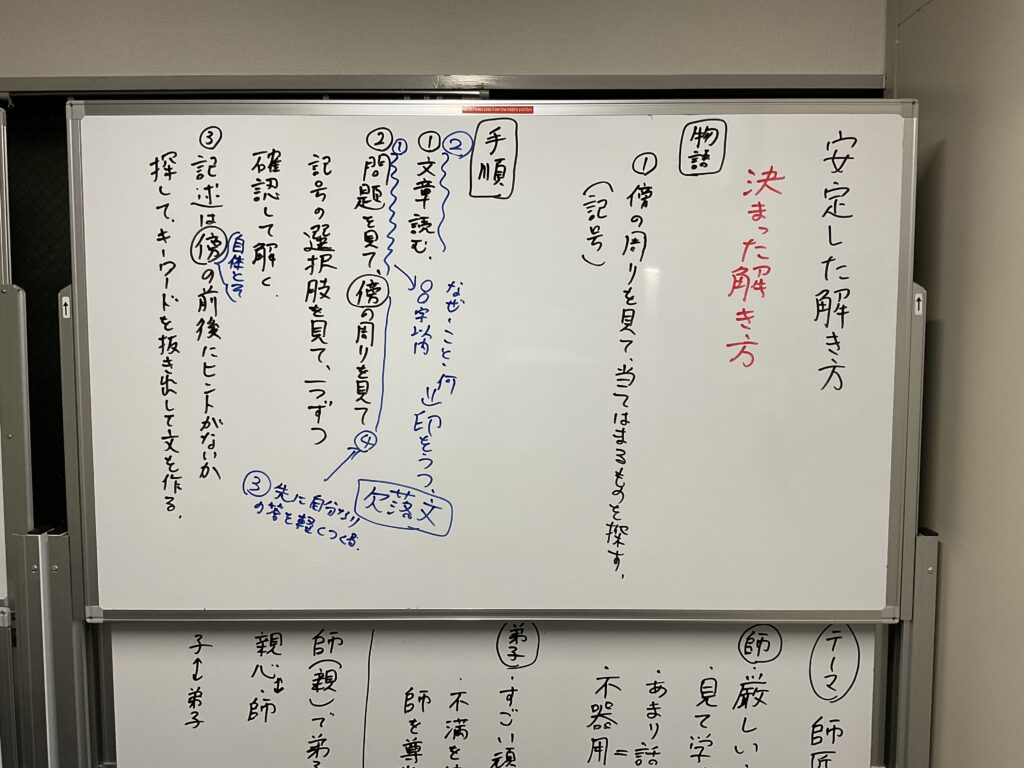 安定した解き方
決まった解き方
物語
① 傍の周りを見て、当てはまるものを探す。
(記号)
手順
②
① 文章読む、
なぜ・こと、何
〇字以内
印をうつ、
欠落文
①
② 問題を見て、傍の周りを見て
④
記号の選択肢を見て、一つずつ
確認して解く.
③ 先に自分なり
の答を軽くつくる.
③ 記述は傍の前後にヒントがないか
自体とそ
探して、キーワードを抜き出して文を作る.
テーマ 師匠
師・厳しい
・見て学
・あまり話
不器用=
弟子・すごい頑
・不満を
師を尊
師(親)で弟子
親心↔師
子↔弟子